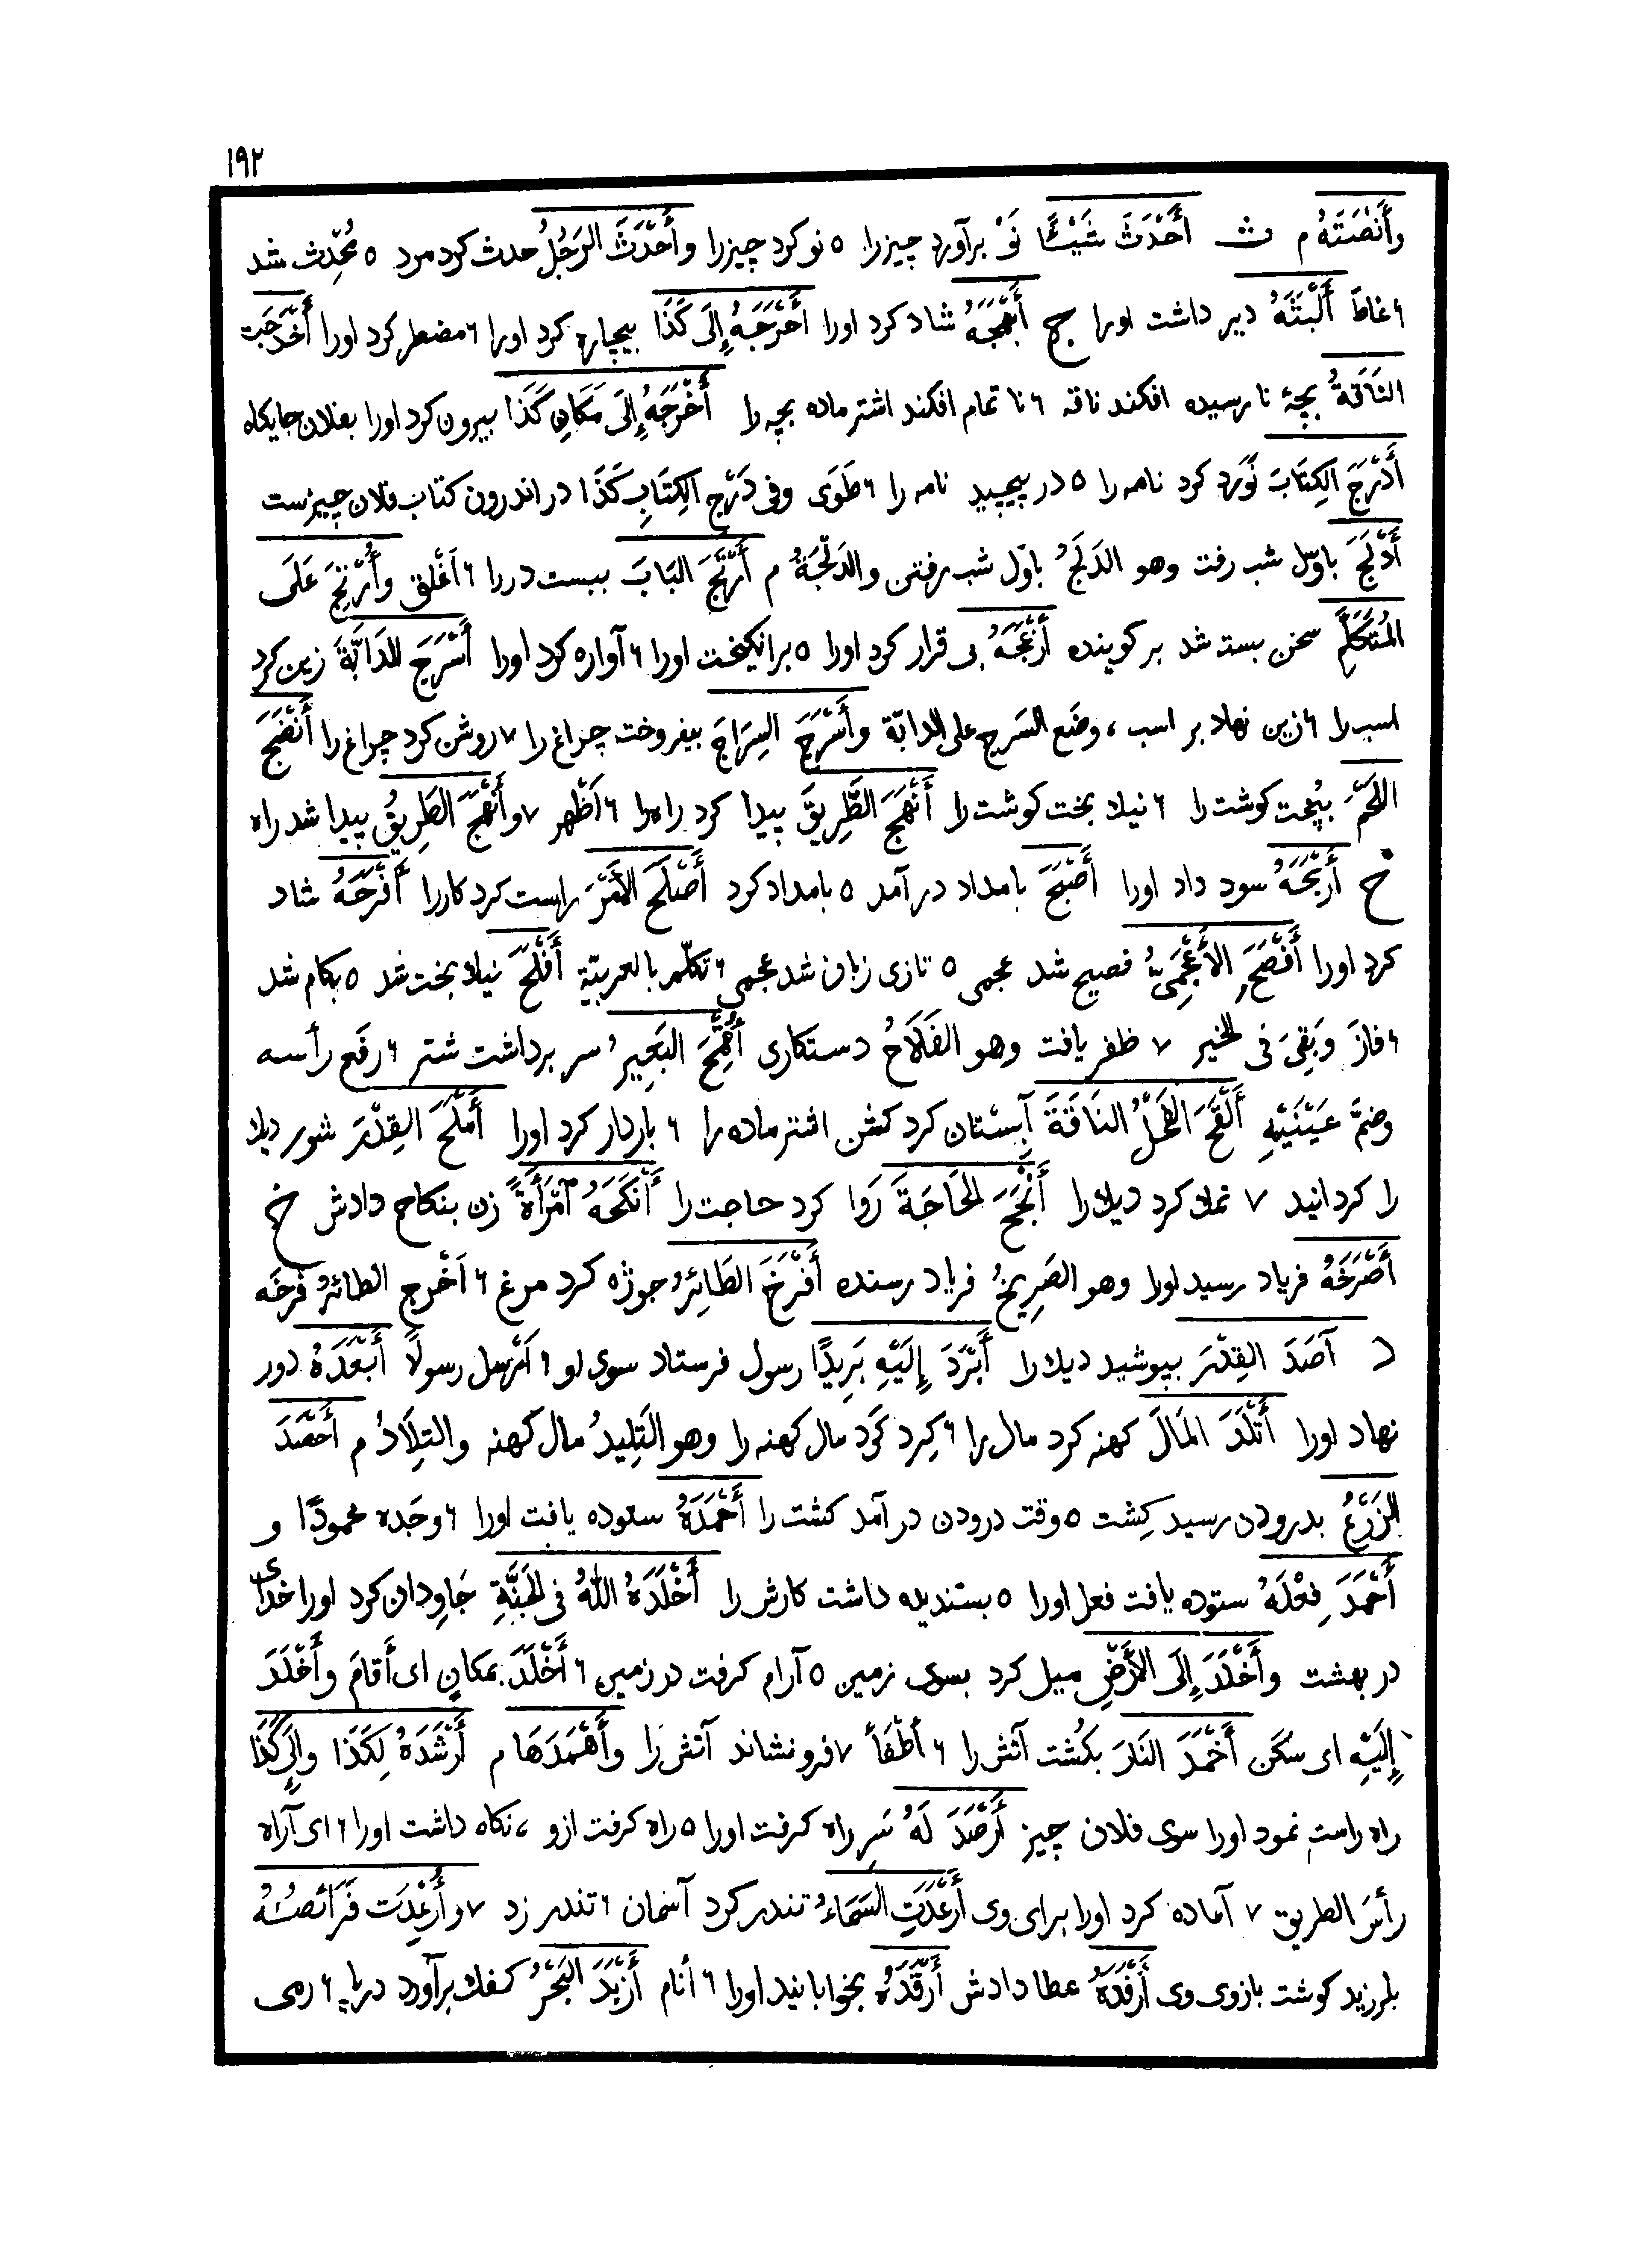 ١٩٢
وأَنْصَتَهُ م ث أَحْدَثَ شَيْئًا نَوْ برآورد چیزرا ٥ نو کرد چیزرا وأَحْدَثَ الرَجُلُ حدث کرد مرد ٥ مُحْدِث شد
٦ غاطَ أَلْبَثَهُ دیر داشت اورا ج أَبْهَجَهُ شاد کرد اورا أَحْرَجَهُ إِلَى كَذَا بیچاره کرد اورا ٦ مضطر کرد اورا أَخْدَجَت
النَاقَةُ بچهٔ نا رسیده افکند ناقه ٦ نا تمام افکند اشتر ماده بچه را أَخْرَجَهُ إِلَى مَكَانِ كَذَا بیرون کرد اورا بفلان جایکاه
أَدْرَجَ الكِتَابَ نَوَرد کرد نامه را ٥ در پیچید نامه را ٦ طَوَى وفى دَرْجِ الكِتَابِ كَذَا در اندرون کتاب فلان چیزست
أَدْلَجَ باوّل شب رفت وهو الدَلَجُ باوّل شب رفتن والدَلْجَةُ م أَرْتَجَ البَابَ ببست دررا ٦ اَغْلق وأُرْتِجَ عَلَى
المُتَكَلِّمِ سخن بسته شد بر کوینده أَزْعَجَهُ بی قرار کرد اورا ٥ برانکیخت اورا ٦ آواره کرد اورا أَسْرَجَ الدَابَّةَ زین کرد
اسب را ٦ زین نهاد بر اسب ، وضَع السَرج على الدابّة وأَسْرَجَ السِرَاجَ بیفروخت چراغ را ٧ روشن کرد چراغ را أَنْضَجَ
اللَحْمَ بپُخت کوشت را ٦ نیك بخت کوشت را أَنْهَجَ الطَّرِيقَ پیدا کرد راه را ٦ اَظْهر ٧ وأَنْهَجَ الطَرِيقُ پیدا شد راه
ح أَرْبَحَهُ سود داد اورا أَصْبَحَ بامداد در آمد ٥ بامداد کرد أَصْلَحَ الأَمْرَ راست کرد کاررا أَفْرَحَهُ شاد
کرد اورا أَفْصَحَ الأَعْجَمِيُّ فصیح شد عجمی ٥ تازی زبان شد عجمی ٦ تكلّم بالعربيّة أَفْلَحَ نیك بخت شد ٥ بکام شد
٦ فازَ وَبَقِىَ فى الخير ٧ ظفر یافت وهو الفَلَاحُ دستکاری أَقْمَحَ البَعِيرُ سر برداشت شتر ٦ رفَع رأسه
وضمَّ عَيْنَيْهِ أَلْقَحَ الفَحْلُ النَاقَةَ آبِسْتان کرد کشن اشتر ماده را ٦ باردار کرد اورا أَمْلَحَ القِدْرَ شور دیك
را کردانید ٧ نمك کرد دیك را أَنْجَحَ الحَاجَةَ رَوا کرد حاجت را أَنْكَحَهُ آمْرَأَةً زن بنکاح دادش خ
أَصْرَخَهُ فریاد رسید اورا وهو الصَرِيخُ فریاد رسنده أَفْرَخَ الطَائِرُ جوژه کرد مرغ ٦ اَخْرج الطائرُ فَرخَه
د آصَدَ القِدْرَ بپوشید دیك را أَبْرَدَ إِلَيْهِ بَرِيدًا رسول فرستاد سوی او ٦ اَرْسل رسولًا أَبْعَدَهُ دور
نهاد اورا أَتْلَدَ المَالَ کهنه کرد مال را ٦ کِرد کَرد مال کهنه را وهو التَلِيدُ مال کهنه والتِلَادُ م أَحْصَدَ
الزَرْعُ بدرودن رسید کِشت ٥ وقت درودن در آمد کشت را أَحْمَدَهُ ستوده یافت اورا ٦ وجَده محمودًا و
أَحْمَدَ فِعْلَهُ ستوده یافت فعل اورا ٥ بسندیده داشت کارش را أَخْلَدَهُ اللّٰهُ فى الجَنَّةِ جَاوِدان کرد اورا خدای
در بهشت وأَخْلَدَ إِلَى الأَرْضِ میل کرد بسوی زمین ٥ آرام کرفت در زمین ٦ أَخْلَدَ بمکانٍ ای أَقامَ وأَخْلَدَ
إِلَيْهِ ای سَکَن أَخْمَدَ النَارَ بکُشت آتش را ٦ أَطْفَأَ ٧ فرو نشاند آتش را وأَهْمَدَهَا م أَرْشَدَهُ لِكَذَا وإِلَى كَذَا
راه راست نمود اورا سوی فلان چیز أَرْصَدَ لَهُ سَرِ راه کرفت اورا ٥ راه کرفت ازو ، نکاه داشت اورا ٦ ای آراه
رأسَ الطريق ٧ آماده کرد اورا برای وی أَرْعَدَتِ السَمَاءُ تندر کرد آسمان ٦ تندر زد ٧ وأُرْعِدَت فَرَائصُهُ
بلرزید کوشت بازوی وی أَرْفَدَهُ عطا دادش أَرْقَدَهُ بخوابانید اورا ٦ أنام أَزْبَدَ البَحْرُ کفك برآورد دریا ٦ رمی